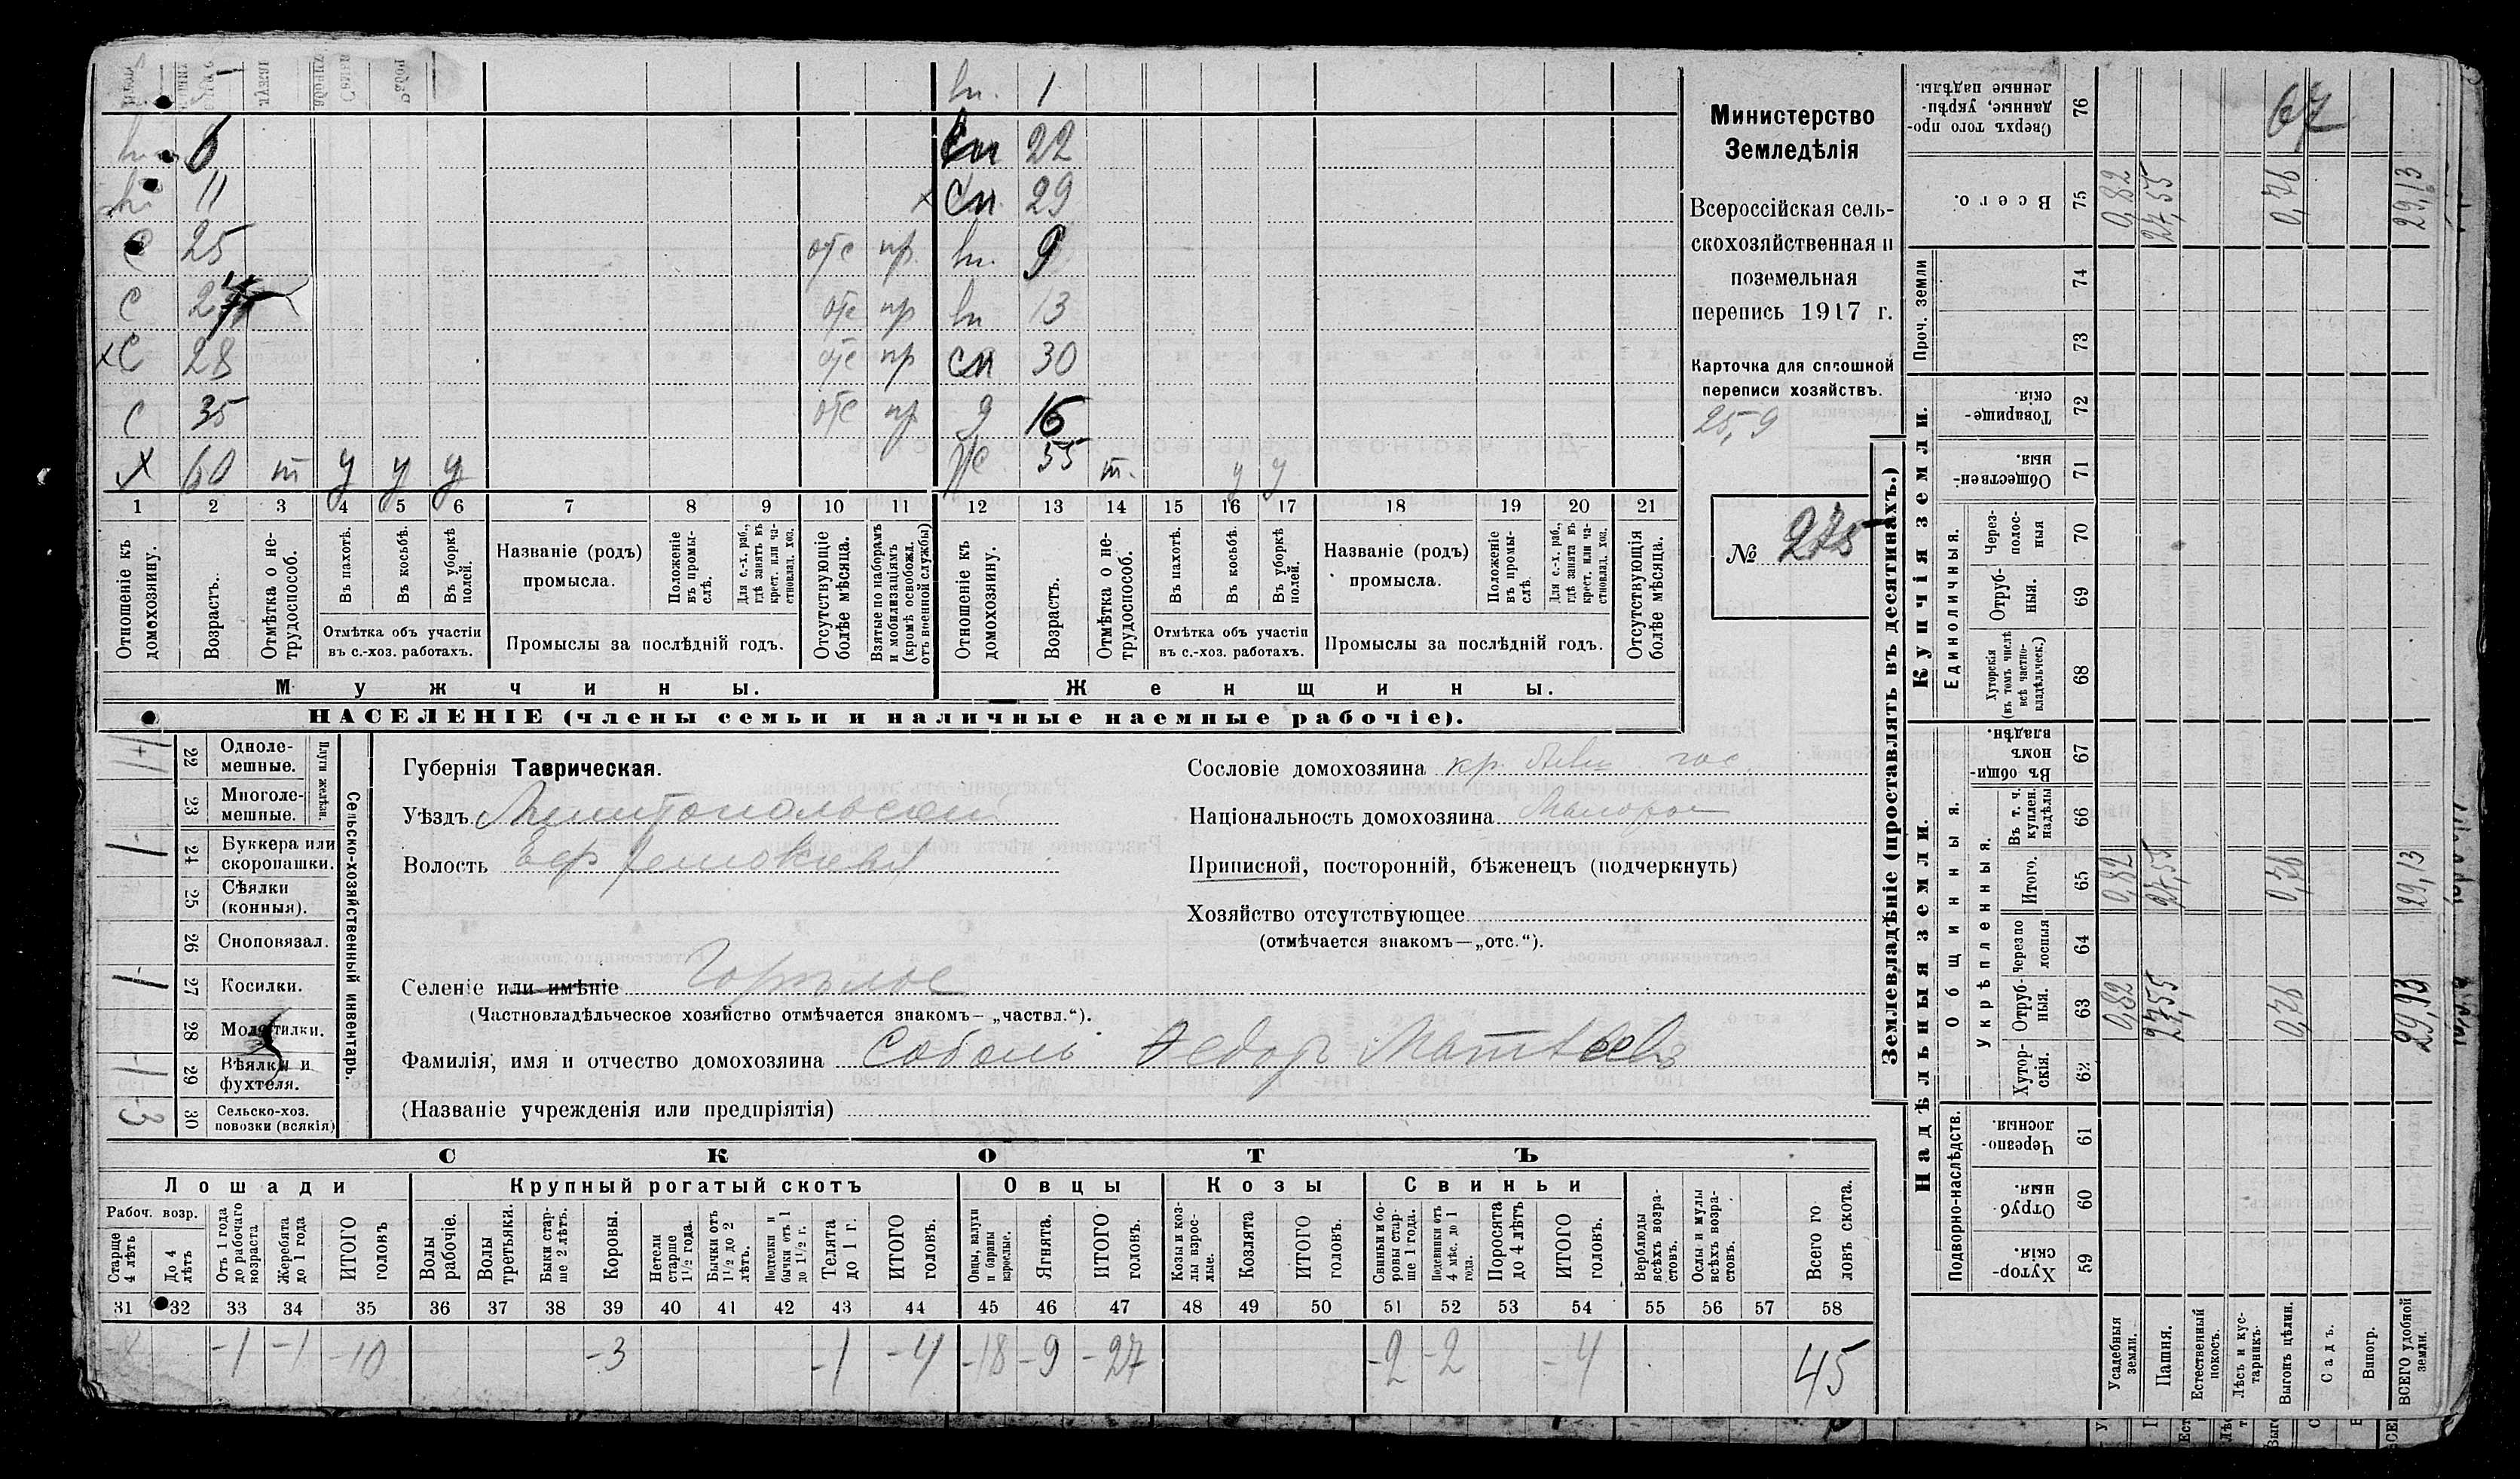 вн. 1
вн 6 сп 22
вн 11 × сп 29
С 25 отс пр. вн. 9
С отс пр вн 13
×С 28 отс пр сп 30
С 35 отс пр д 16
Х 60 т у у у ж 55 т. у у
1 2 3 4 5 6 7 8 9 10 11 12 13 14 15 16 17 18 19 20 21
Отношеніе къ домохозяину.
Возрастъ.
Отмѣтка о нетрудоспособ.
Въ пахотѣ.
Въ косьбѣ.
Въ уборкѣ полей.
Отмѣтка объ участіи въ с.-хоз. работахъ.
Названіе (родъ) промысла.
Положеніе въ промыслѣ.
Для с.-х. раб., гдѣ занятъ въ крест. или частновлад. хоз.
Промыслы за послѣдній годъ.
Отсутствующіе болѣе мѣсяца.
Взятые по наборамъ и мобилизаціямъ (кромѣ освобожд. отъ военной службы)
Отношеніе къ домохозяину.
Возрастъ.
Отмѣтка о нетрудоспособ.
Въ пахотѣ.
Въ косьбѣ.
Въ уборкѣ полей.
Отмѣтка объ участіи въ с.-хоз. работахъ.
Названіе (родъ) промысла.
Положеніе въ промыслѣ.
Для с.-х. раб., гдѣ занята въ крест. или частновлад. хоз.
Промыслы за послѣдній годъ.
Отсутствующія болѣе мѣсяца.
Мужчины.
Женщины.
НАСЕЛЕНІЕ (члены семьи и наличные наемные рабочіе).
Министерство
Земледѣлія
Всероссійская сель-
скохозяйственная и
поземельная
перепись 1917 г.
Карточка для сплошной
переписи хозяйствъ.
25,9
№ 275
Сельско-хозяйственный инвентарь.
Плуги желѣзн.
1+1 22 Одноле-
мешные.
23 Многоле-
мешные.
1 24 Буккера или
скоропашки.
25 Сѣялки
(конныя).
26 Сноповязал.
1 27 Косилки.
28 Молотилки.
1 29 Вѣялки и
фухтеля.
3 30 Сельско-хоз.
повозки (всякія)
Губернія Таврическая.
Уѣздъ Мелитопольскій
Волость
Селеніе или имѣніе Горѣлое
(Частновладѣльческое хозяйство отмѣчается знакомъ—„частвл.“).
Фамилія, имя и отчество домохозяина Соболь Федоръ Матвѣевъ
(Названіе учрежденія или предпріятія)
Сословіе домохозяина кр. гос.
Національность домохозяина Малорос
Приписной, посторонній, бѣженецъ (подчеркнуть)
Хозяйство отсутствующее
(отмѣчается знакомъ—„отс.“).
СКОТЪ
Лошади
Крупный рогатый скотъ
Овцы
Козы
Свиньи
Рабоч. возр.
Старше 4 лѣтъ
До 4 лѣтъ
Отъ 1 года до рабочаго возраста
Жеребята до 1 года
ИТОГО головъ
Волы рабочіе.
Волы третьяки.
Быки старше 2 лѣтъ.
Коровы.
Нетели старше 1 1/2 года.
Бычки отъ 1 1/2 до 2 лѣтъ.
Подтелки и бычки отъ 1 до 1 1/2 г.
Телята до 1 г.
ИТОГО головъ.
Овцы, валухи и бараны взрослые.
Ягнята.
ИТОГО головъ.
Козы и козлы взрослые.
Козлята
ИТОГО головъ.
Свиньи и боровы старше 1 года.
Подсвинки отъ 4 мѣс. до 1 года.
Поросята до 4 лѣтъ
ИТОГО головъ.
Верблюды всѣхъ возрастовъ.
Ослы и мулы всѣхъ возрастовъ.
Всего головъ скота.
31 32 33 34 35 36 37 38 39 40 41 42 43 44 45 46 47 48 49 50 51 52 53 54 55 56 57 58
-8 -1 -1 -10 -3 -1 -4 -18 -9 -27 -2 -2 -4 45
Землевладѣніе (проставлять въ десятинахъ.)
Купчія земли.
Надѣльныя земли.
Сверхъ того проданные, укрѣпленные надѣлы. 76 67
Всего. 75 0,82 27,55 0,76 29,13
Проч. земли
74
73
Товарищескія. 72
Общественныя. 71
Единоличныя.
Черезполосныя 70
Отрубныя. 69
Хуторскія (въ томъ числѣ всѣ частновладѣльческ.) 68
Общинныя.
Въ общинномъ владѣн. 67
Укрѣпленныя.
Въ т. ч. куплен. надѣлы 66
Итого. 65 0,82 27,55 0,76 29,13
Черезполосныя 64
Отрубныя. 63 0,82 27,55 0,76 29,13
Хуторскія. 62
Подворно-наслѣдств.
Черезполосныя. 61
Отрубныя. 60
Хуторскія. 59
Усадебныя земли.
Пашня.
Естественный покосъ.
Лѣсъ и кустарникъ
Выгонъ цѣлин.
Садъ.
Виногр.
ВСЕГО удобной земли.